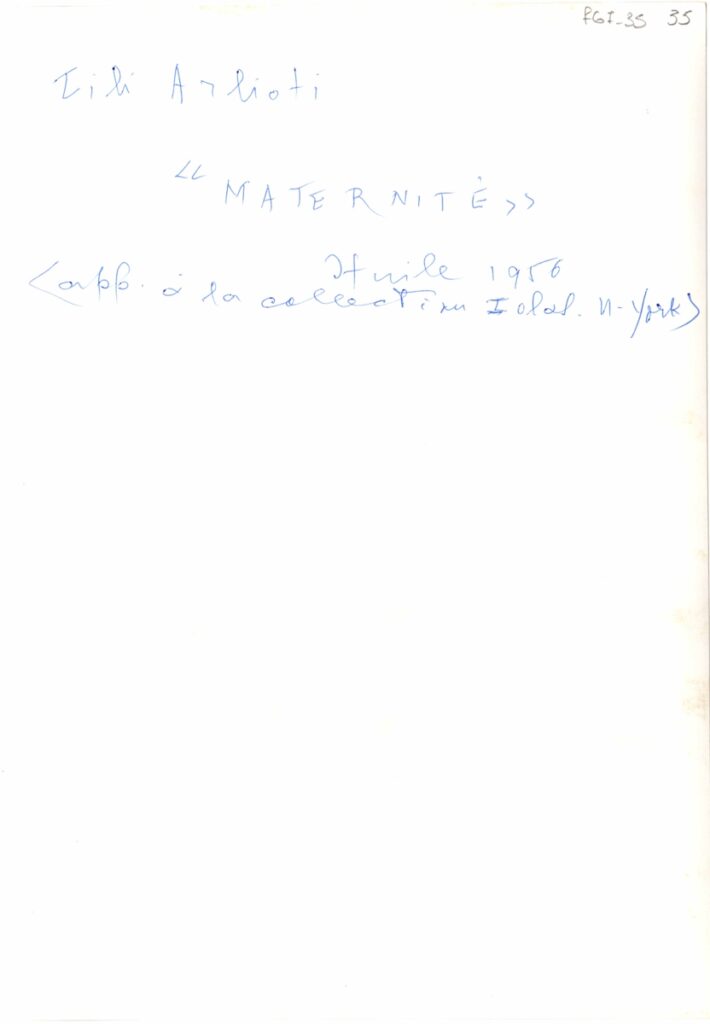 FGI_35 35
Lili Arlioti
<< MATERNITÉ >>
Huile 1956
(app. à la collection Iolas. N-York)